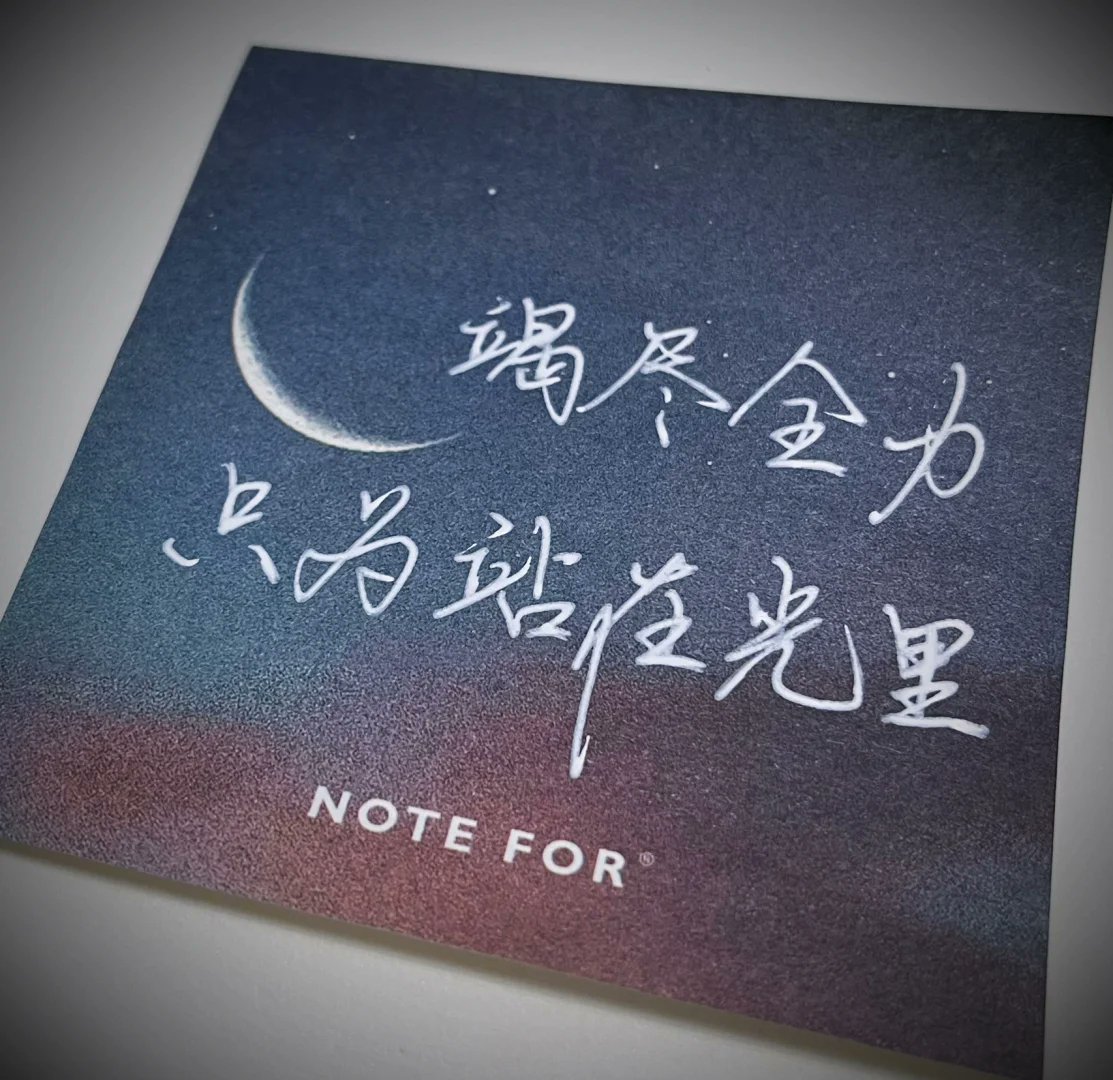 竭尽全力
只为站在光里
NOTE FOR®